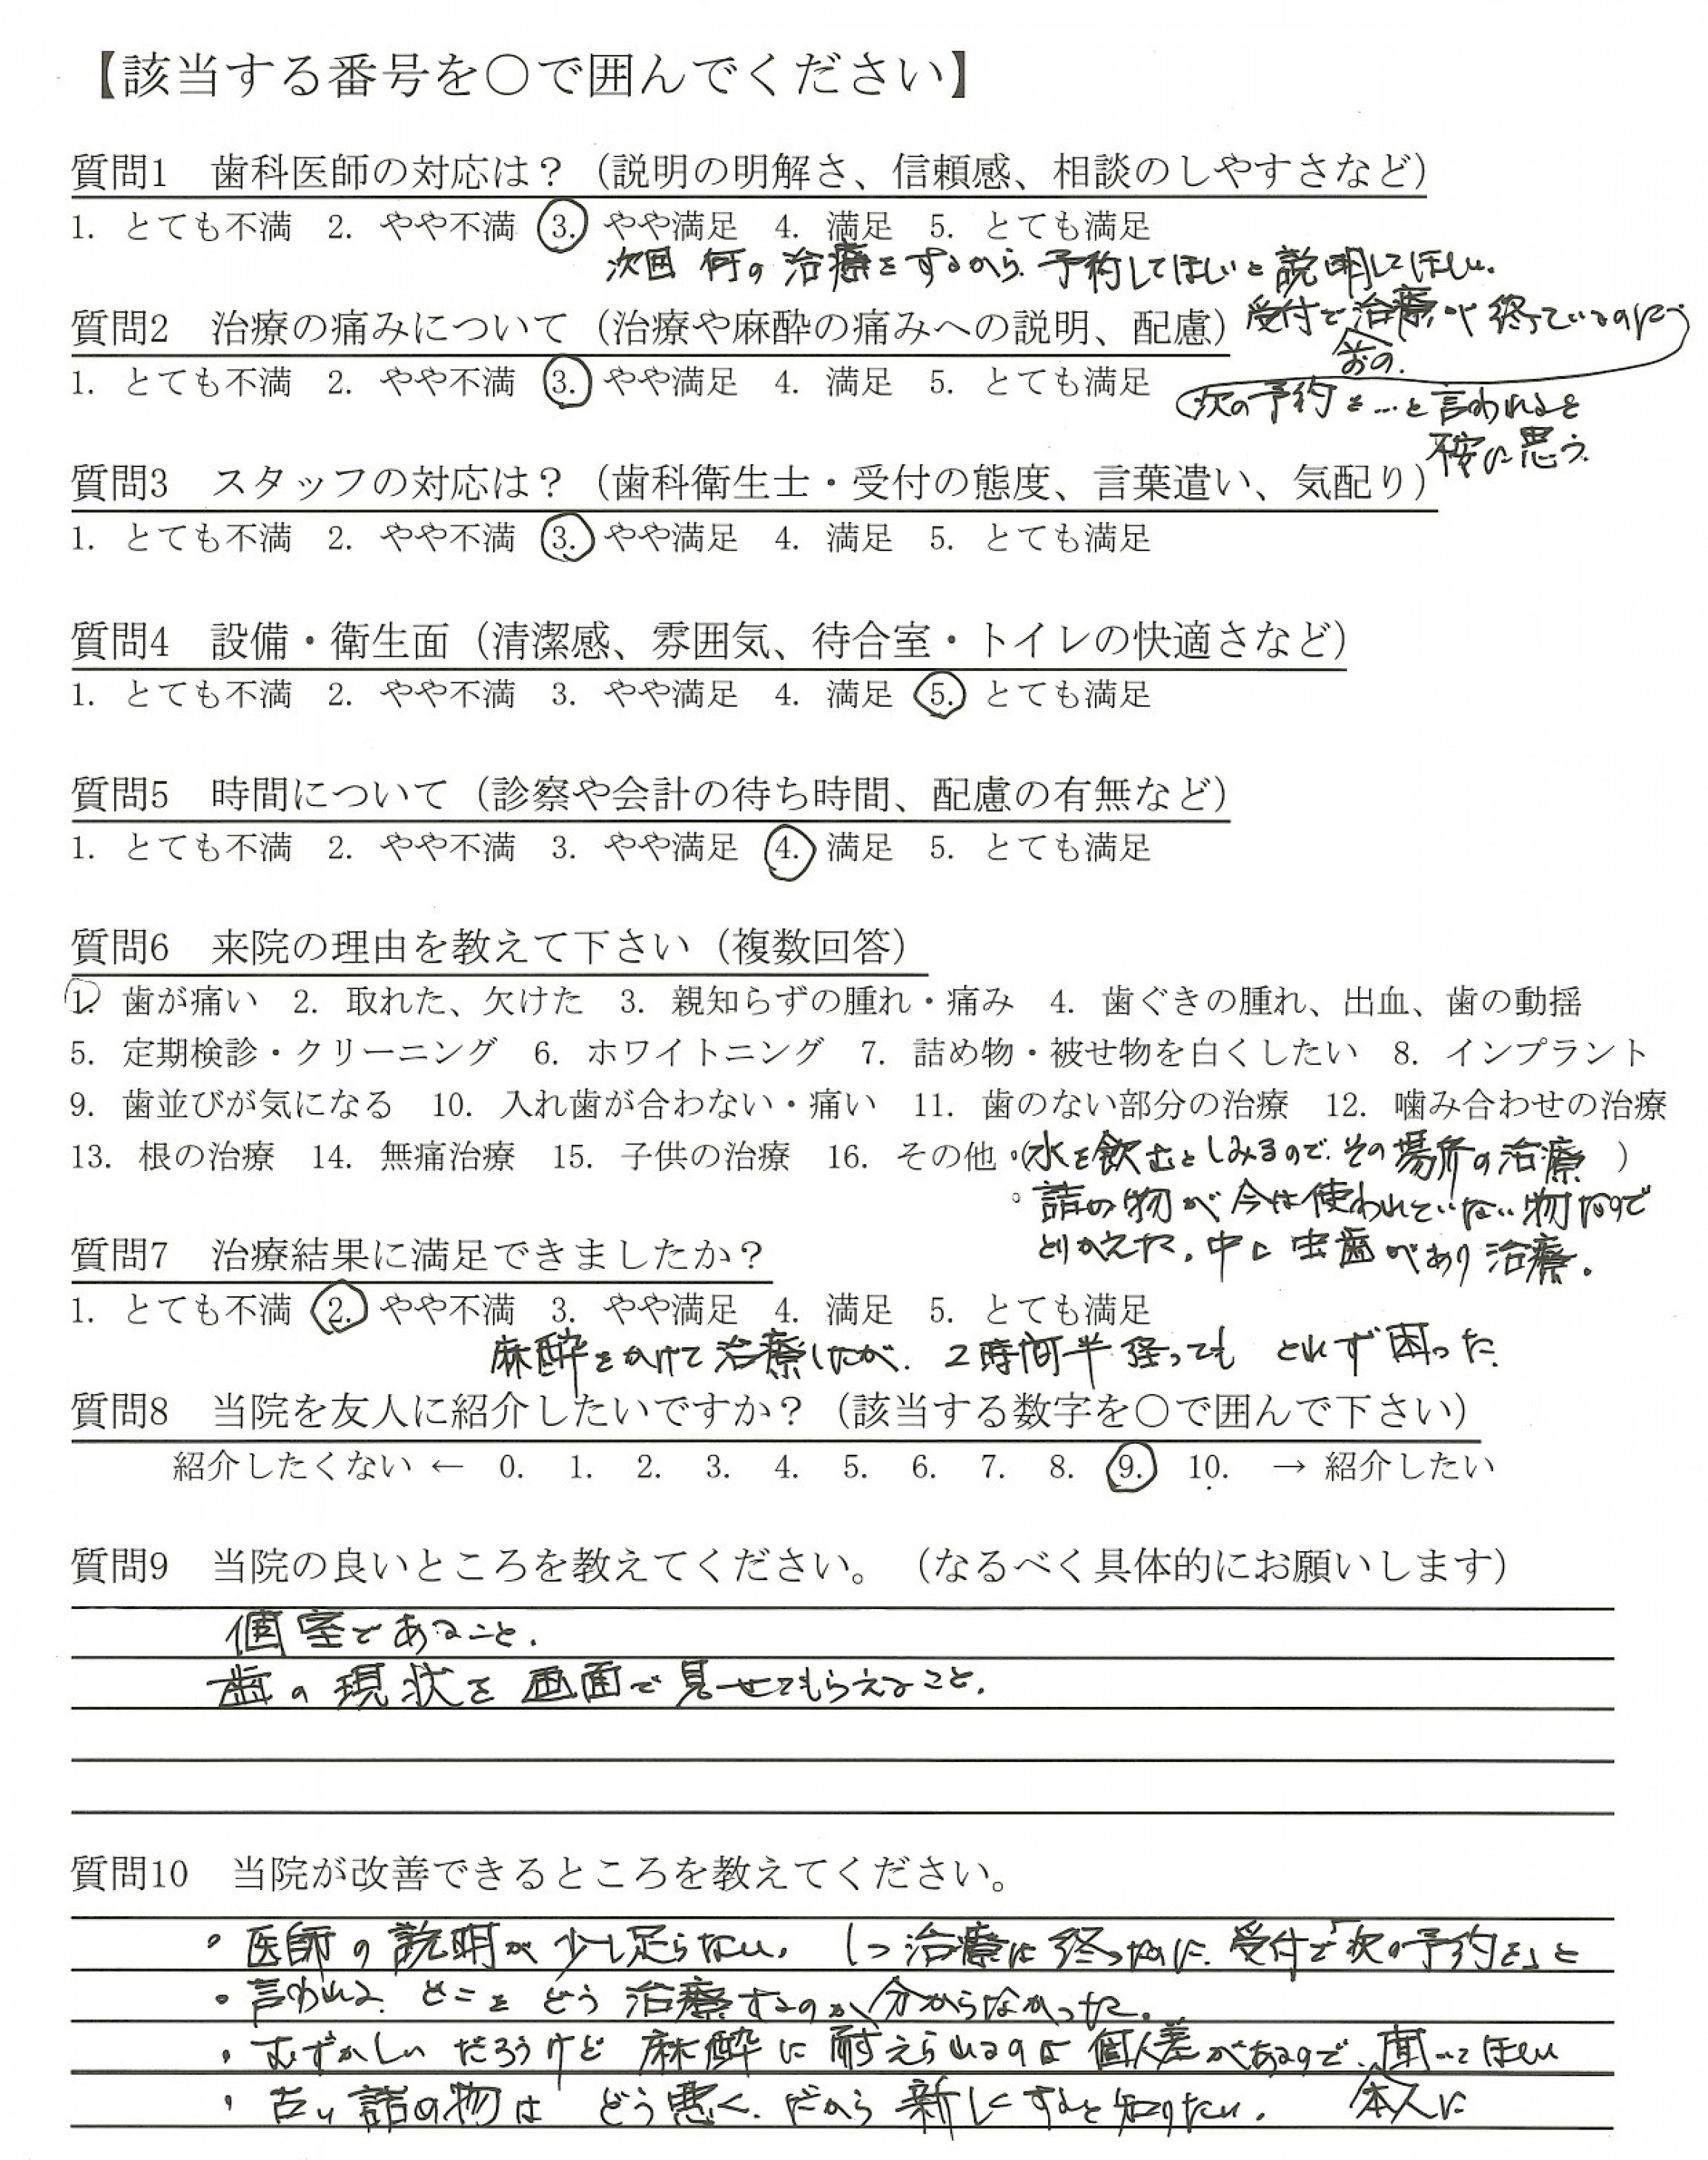 【該当する番号を〇で囲んでください】
質問1　歯科医師の対応は？（説明の明解さ、信頼感、相談のしやすさなど）
1. とても不満　2. やや不満　3. やや満足　4. 満足　5. とても満足
次回 何の治療をするから、予約してほしいと説明してほしい。
受付で治療が終っているのに
次の予約を…と言われると
不安に思う。
質問2　治療の痛みについて（治療や麻酔の痛みへの説明、配慮）
1. とても不満　2. やや不満　3. やや満足　4. 満足　5. とても満足
質問3　スタッフの対応は？（歯科衛生士・受付の態度、言葉遣い、気配り）
1. とても不満　2. やや不満　3. やや満足　4. 満足　5. とても満足
質問4　設備・衛生面（清潔感、雰囲気、待合室・トイレの快適さなど）
1. とても不満　2. やや不満　3. やや満足　4. 満足　5. とても満足
質問5　時間について（診察や会計の待ち時間、配慮の有無など）
1. とても不満　2. やや不満　3. やや満足　4. 満足　5. とても満足
質問6　来院の理由を教えて下さい（複数回答）
1. 歯が痛い　2. 取れた、欠けた　3. 親知らずの腫れ・痛み　4. 歯ぐきの腫れ、出血、歯の動揺
5. 定期検診・クリーニング　6. ホワイトニング　7. 詰め物・被せ物を白くしたい　8. インプラント
9. 歯並びが気になる　10. 入れ歯が合わない・痛い　11. 歯のない部分の治療　12. 噛み合わせの治療
13. 根の治療　14. 無痛治療　15. 子供の治療　16. その他・（水を飲むとしみるので、その場所の治療　）
・詰め物が今は使われていない物なので
とりかえた。中に虫歯があり治療。
質問7　治療結果に満足できましたか？
1. とても不満　2. やや不満　3. やや満足　4. 満足　5. とても満足
麻酔をかけて治療したが、2時間半経ってもとれず困った。
質問8　当院を友人に紹介したいですか？（該当する数字を〇で囲んで下さい）
紹介したくない ←　0.　1.　2.　3.　4.　5.　6.　7.　8.　9.　10.　→ 紹介したい
質問9　当院の良いところを教えてください。（なるべく具体的にお願いします）
個室であること。
歯の現状を画面で見せてもらえること。
質問10　当院が改善できるところを教えてください。
・医師の説明が少し足らない。1つ治療は終ったのに、受付で「次の予約を」と
・言われる。どこをどう治療するのか分からなかった。
・むずかしいだろうけど麻酔に耐えられるのは個人差があるので、本人に聞いてほしい
・古い詰め物はどう悪く、だから新しくすると知りたい。